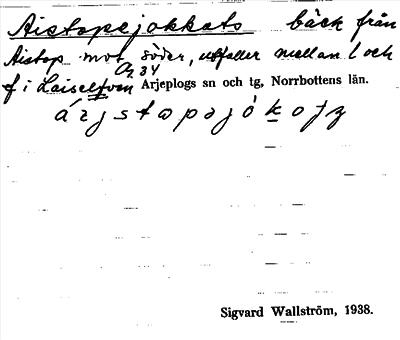 Aistopejokkats bäck från
Aistop mot söder, utfaller mellan l och
f i Laiselfven Arjeplogs sn och tg, Norrbottens län.
34
Sigvard Wallström, 1938.